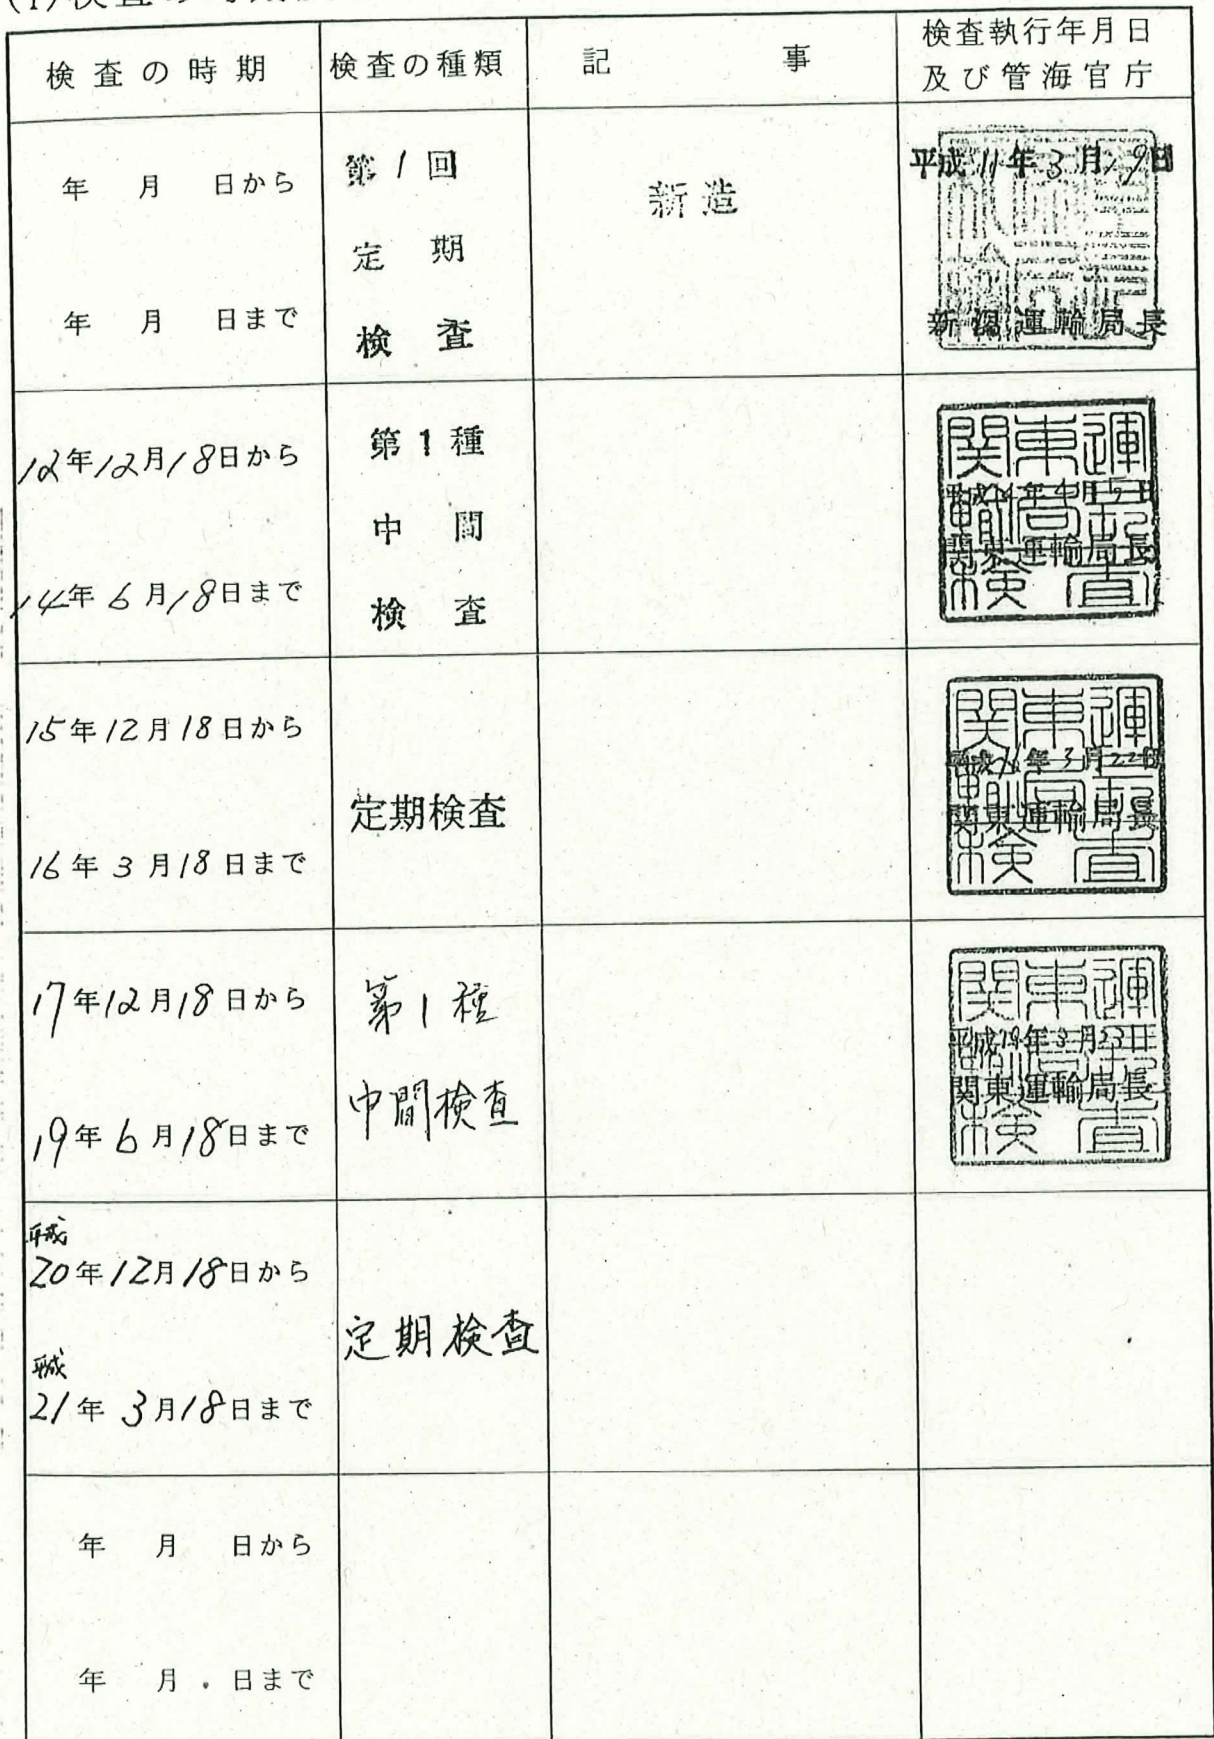 検査の時期
検査の種類
記 事
検査執行年月日
及び管海官庁
年 月 日から
年 月 日まで
第1回
定期
検査
新造
平成11年3月19日
新潟運輸局長
12年12月18日から
14年6月18日まで
第1種
中間
検査
関東運
輸局
検査
関東運輸局長
15年12月18日から
16年3月18日まで
定期検査
関東運
輸局
検査
平成16年3月22日
関東運輸局長
17年12月18日から
19年6月18日まで
第1種
中間検査
関東運
輸局
検査
平成19年3月23日
関東運輸局長
平成
20年12月18日から
平成
21年3月18日まで
定期検査
年 月 日から
年 月 日まで